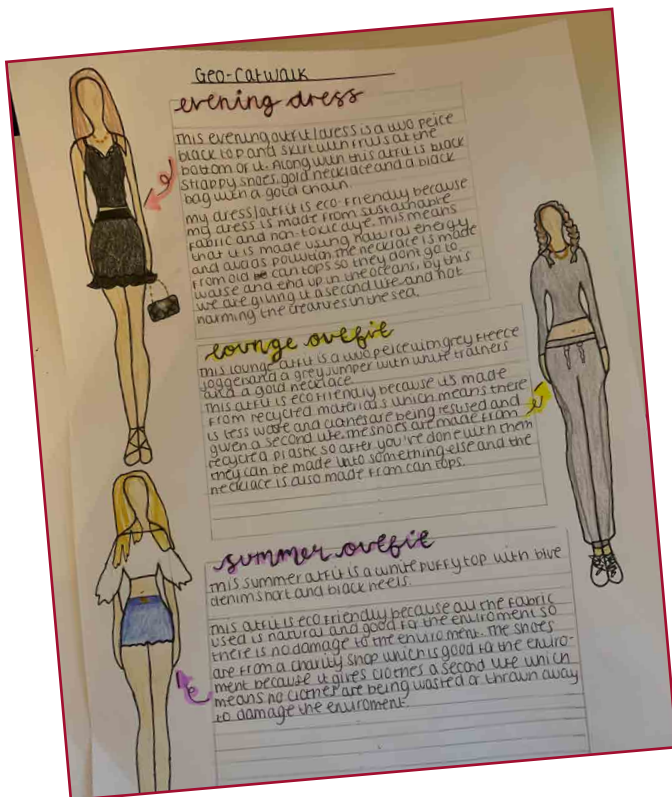 Geo-Catwalk
evening dress
This evening outfit/dress is a two peice
black top and skirt with frills at the
bottom of it. Along with this outfit is black
strappy shoes, gold necklace and a black
bag with a gold chain.
my dress/outfit is eco-friendly because
my dress is made from sustainable
fabric and non-toxic dye. This means
that it is made using natural energy
and avoids pollution. The necklace is made
from old can tops so they dont go to
waste and end up in the oceans, by this
we are giving it a second life and not
harming the creatures in the sea.
lounge
This lounge outfit is a two peice with grey fleece
jogger and a grey jumper with white trainers
and a gold necklace.
This outfit is eco friendly because it's made
from recycled materials which means there
is less waste and clothes are being resused and
given a second life. The shoes are made from
recycled plastic so after you're done with them
they can be made into something else and the
necklace is also made from can tops.
summer
This summer outfit is a white puffy top with blue
denim short and black heels.
This outfit is eco friendly because all the fabric
used is natural and good for the enviroment so
there is no damage to the enviroment. The shoes
are from a charity shop which is good for the enviro-
ment because it gives clothes a second life which
means no clothes are being wasted or thrown away
to damage the enviroment.